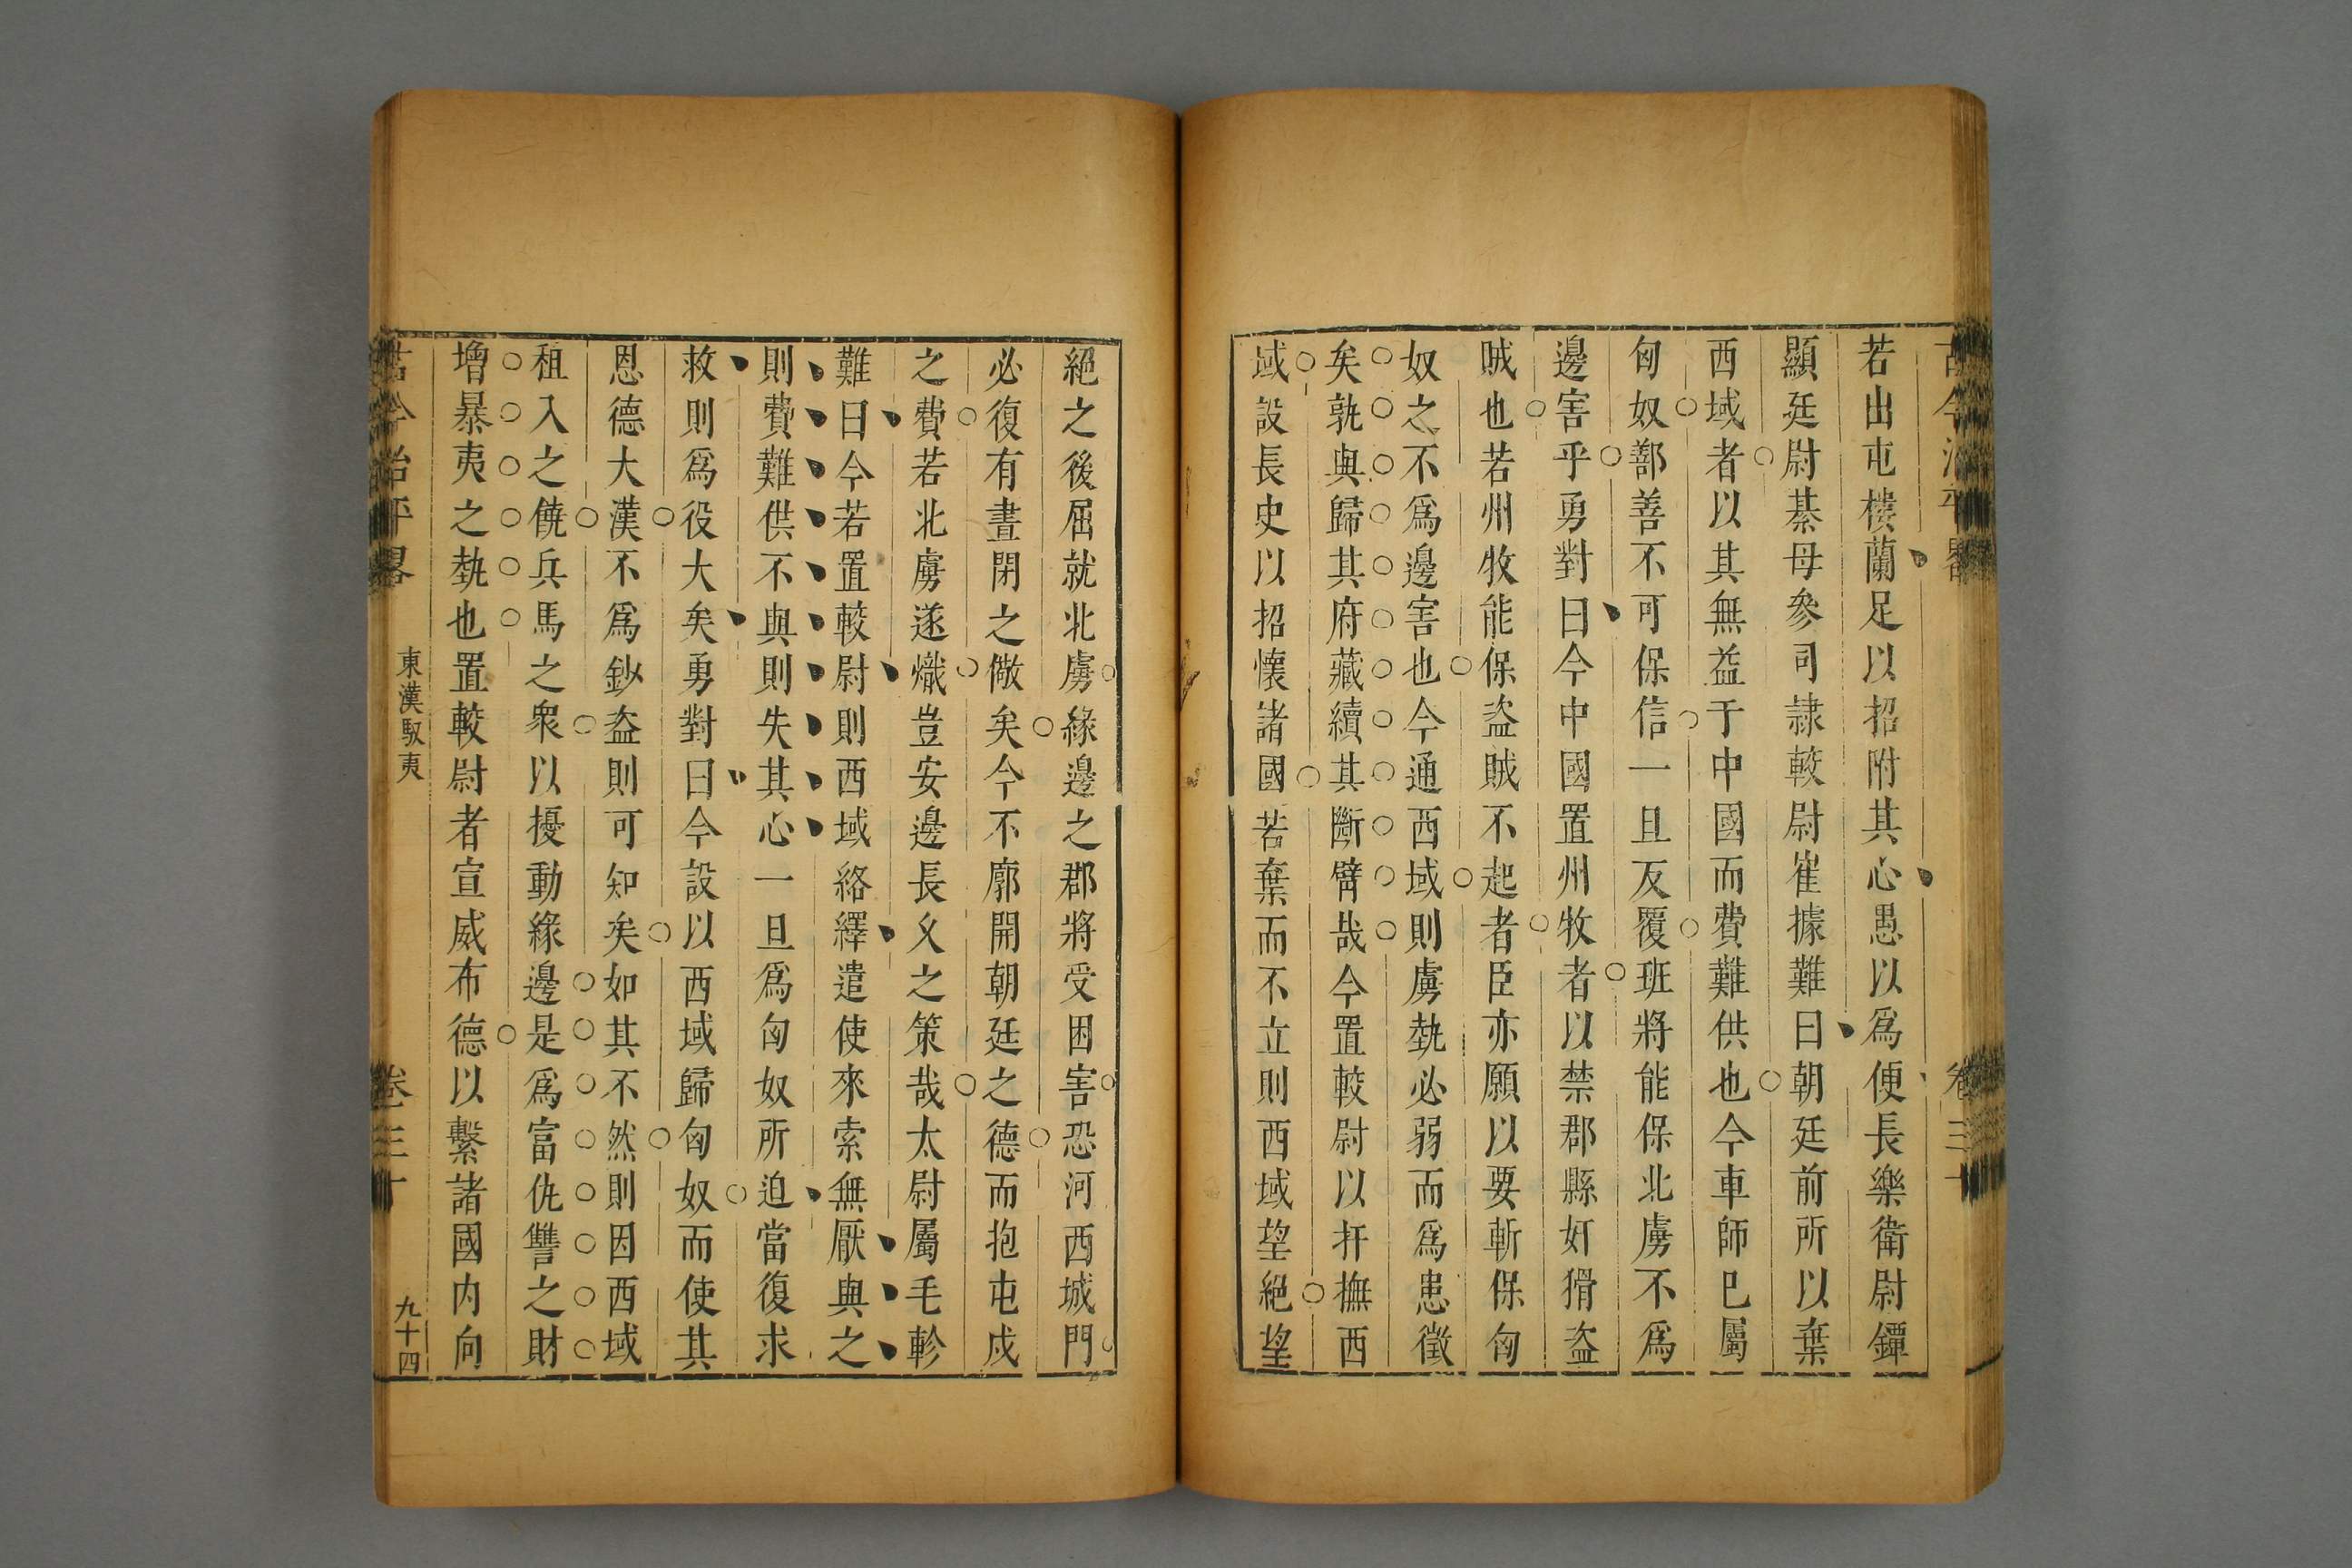 若出屯樓蘭足以招附其心愚以爲便長樂衛尉鐔
顯廷尉綦母參司隷較尉崔據難曰朝廷前所以棄
西域者以其無益于中國而費難供也今車師已屬
匈奴鄯善不可保信一旦反覆班將能保北虜不爲
邊害乎勇對曰今中國置州牧者以禁郡縣奸猾盗
賊也若州牧能保盗賊不起者臣亦願以要斬保匈
奴之不爲邊害也今通西域則虜埶必弱而爲患微
矣孰與歸其府藏續其斷臂哉今置較尉以扞撫西
域設長史以招懷諸國若棄而不立則西域望絕望
絕之後屈就北虜緣邊之郡將受困害恐河西城門
必復有晝閉之儆矣今不廓開朝廷之德而抱屯戍
之費若北虜遂熾豈安邊長久之策哉太尉屬毛軫
難曰今若置較尉則西域絡繹遣使來索無厭與之
則費難供不與則失其心一旦爲匈奴所迫當復求
救則爲役大矣勇對曰今設以西域歸匈奴而使其
恩德大漢不爲鈔盗則可知矣如其不然則因西域
租入之饒兵馬之衆以擾動緣邊是爲富仇讐之財
增暴夷之埶也置較尉者宣威布德以繫諸國内向
古今治平畧
東漢馭夷
卷三十
九十四